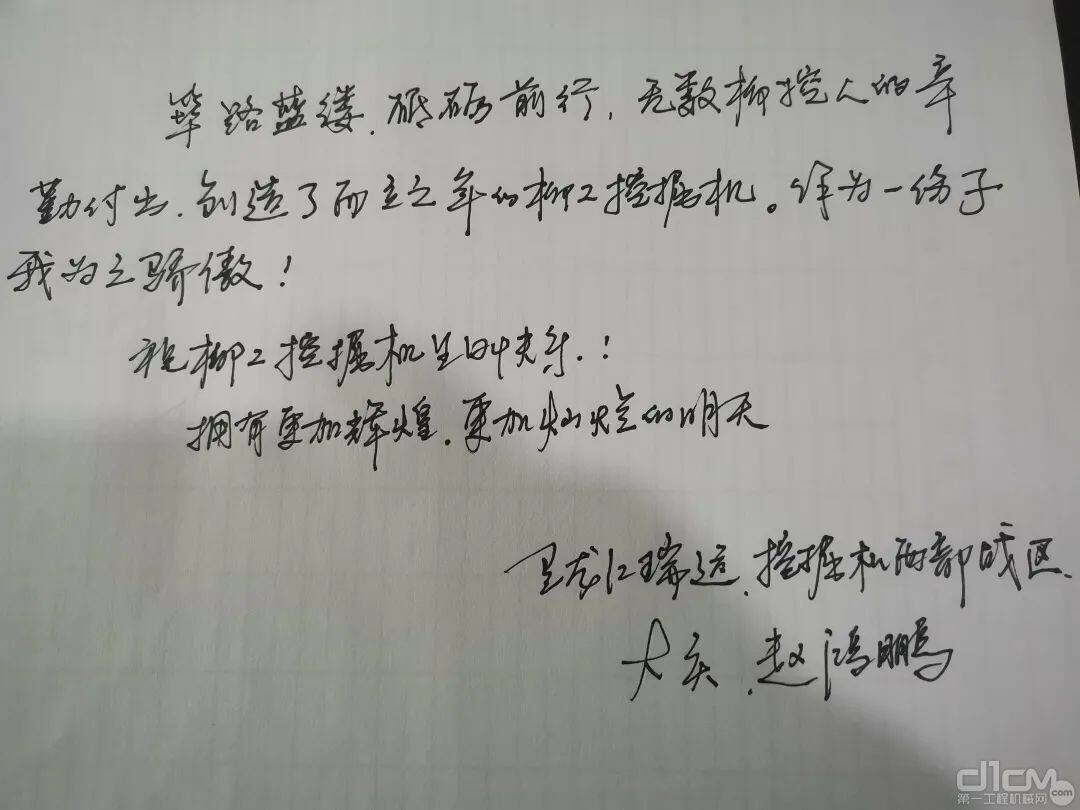 筚路蓝缕、砥砺前行，无数柳挖人的辛
勤付出、创造了而立之年的柳工挖掘机。作为一份子
我为之骄傲！
祝柳工挖掘机生日快乐.！
拥有更加辉煌、更加灿烂的明天
黑龙江瑞远、挖掘机西部战区、
大庆、赵鸿鹏
d1cm.com
第一工程机械网